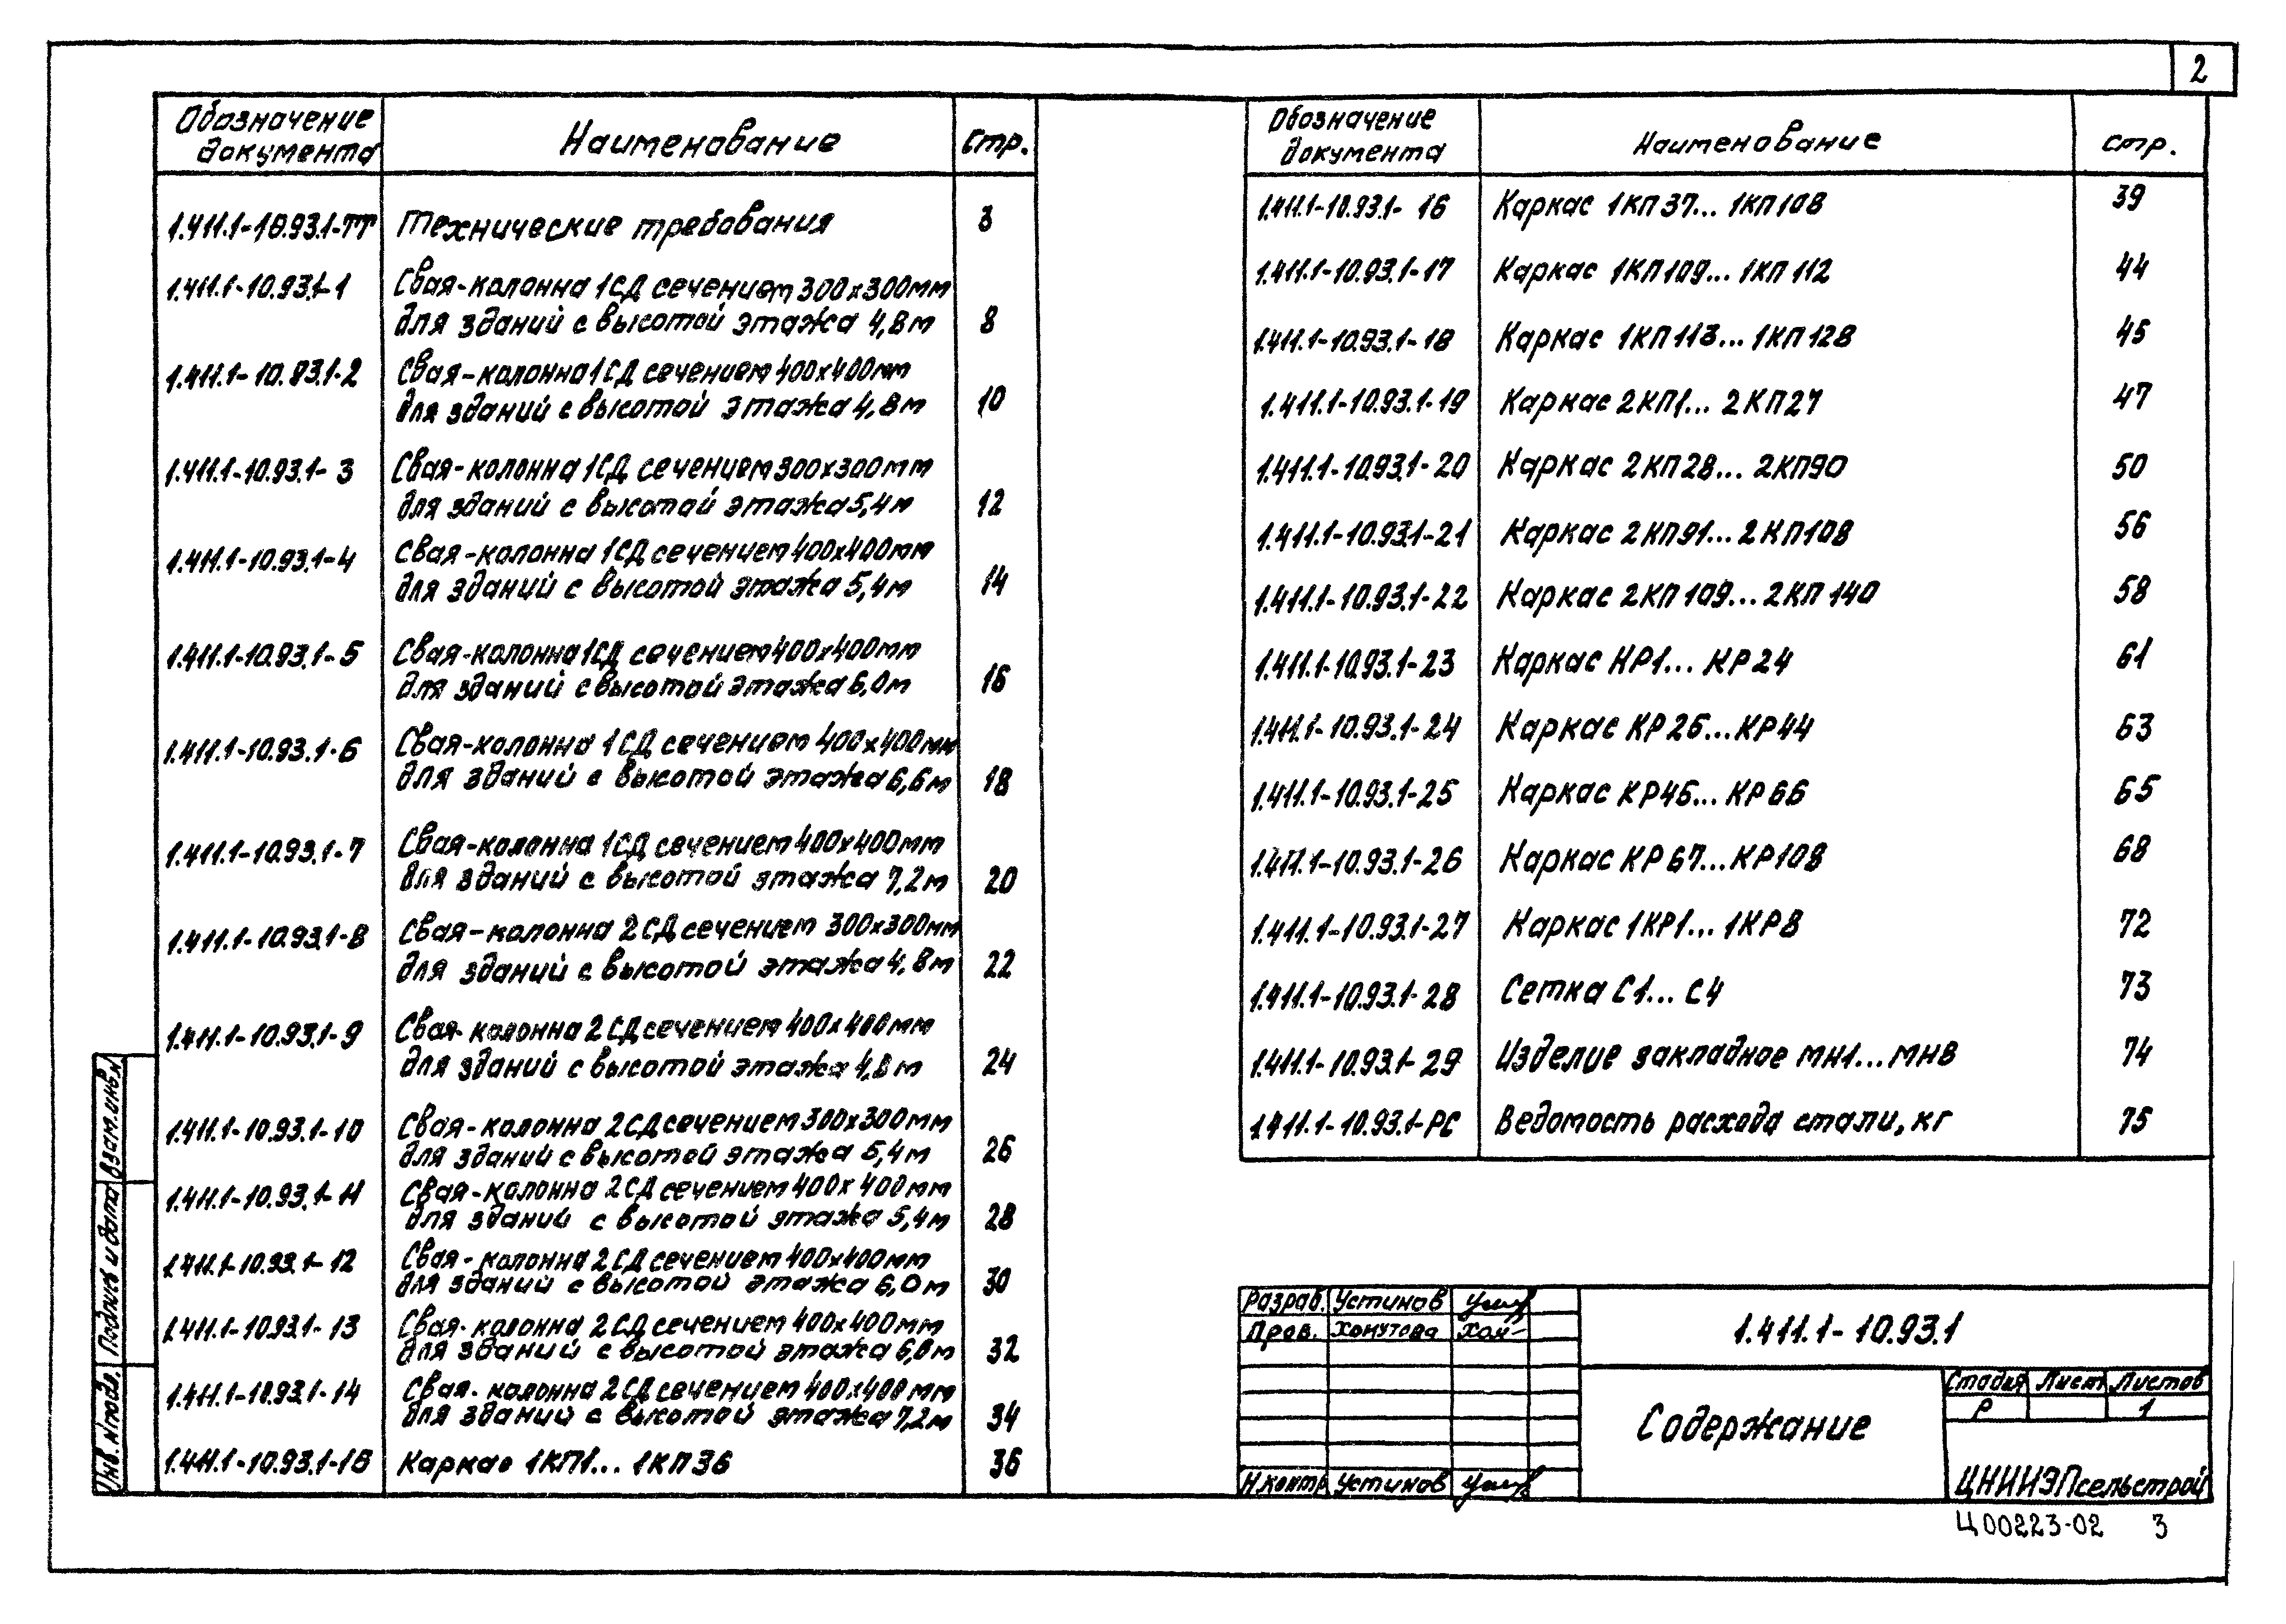 2
Обозначение документа Наименование стр.
1.411.1-10.93.1-ТТ Технические требования 3
1.411.1-10.93.1-1 Свая-колонна 1СД сечением 300х300мм
для зданий с высотой этажа 4,8м 8
1.411.1-10.93.1-2 Свая-колонна 1СД сечением 400х400мм
для зданий с высотой этажа 4,8м 10
1.411.1-10.93.1-3 Свая-колонна 1СД сечением 300х300мм
для зданий с высотой этажа 5,4м 12
1.411.1-10.93.1-4 Свая-колонна 1СД сечением 400х400мм
для зданий с высотой этажа 5,4м 14
1.411.1-10.93.1-5 Свая-колонна 1СД сечением 400х400мм
для зданий с высотой этажа 6,0м 16
1.411.1-10.93.1-6 Свая-колонна 1СД сечением 400х400мм
для зданий с высотой этажа 6,6м 18
1.411.1-10.93.1-7 Свая-колонна 1СД сечением 400х400мм
для зданий с высотой этажа 7,2м 20
1.411.1-10.93.1-8 Свая-колонна 2СД сечением 300х300мм
для зданий с высотой этажа 4,8м 22
1.411.1-10.93.1-9 Свая-колонна 2СД сечением 400х400мм
для зданий с высотой этажа 4,8м 24
1.411.1-10.93.1-10 Свая-колонна 2СД сечением 300х300мм
для зданий с высотой этажа 5,4м 26
1.411.1-10.93.1-11 Свая-колонна 2СД сечением 400х400мм
для зданий с высотой этажа 5,4м 28
1.411.1-10.93.1-12 Свая-колонна 2СД сечением 400х400мм
для зданий с высотой этажа 6,0м 30
1.411.1-10.93.1-13 Свая-колонна 2СД сечением 400х400мм
для зданий с высотой этажа 6,6м 32
1.411.1-10.93.1-14 Свая-колонна 2СД сечением 400х400мм
для зданий с высотой этажа 7,2м 34
1.411.1-10.93.1-15 Каркас 1КП1... 1КП36 36
Обозначение документа Наименование стр.
1.411.1-10.93.1-16 Каркас 1КП37... 1КП108 39
1.411.1-10.93.1-17 Каркас 1КП109... 1КП112 44
1.411.1-10.93.1-18 Каркас 1КП113... 1КП128 45
1.411.1-10.93.1-19 Каркас 2КП1... 2КП27 47
1.411.1-10.93.1-20 Каркас 2КП28... 2КП90 50
1.411.1-10.93.1-21 Каркас 2КП91... 2КП108 56
1.411.1-10.93.1-22 Каркас 2КП109... 2КП140 58
1.411.1-10.93.1-23 Каркас КР1... КР24 61
1.411.1-10.93.1-24 Каркас КР26...КР44 63
1.411.1-10.93.1-25 Каркас КР45... КР66 65
1.411.1-10.93.1-26 Каркас КР67...КР108 68
1.411.1-10.93.1-27 Каркас 1КР1... 1КР8 72
1.411.1-10.93.1-28 Сетка С1... С4 73
1.411.1-10.93.1-29 Изделие закладное МН1...МН8 74
1.411.1-10.93.1-РС Ведомость расхода стали, кг 75
Взам.инв.N
Подпись и дата
Инв. N подл.
Разраб. Устинов
Пров. Хомутова
Н.контр Устинов
1.411.1-10.93.1
Содержание
Стадия Лист Листов
Р 1
ЦНИИЭПсельстрой
Ц00223-02 3